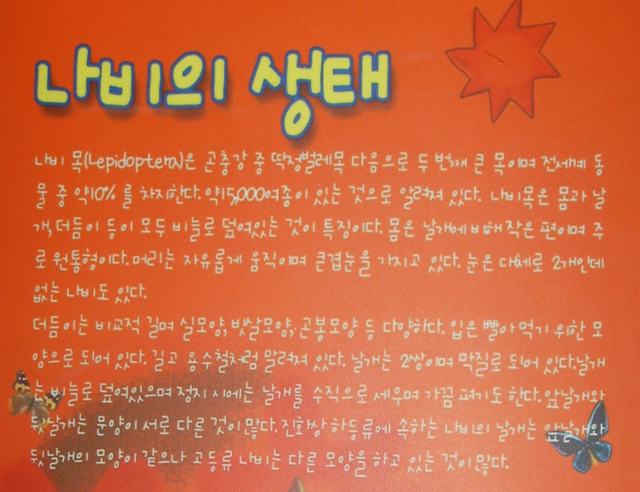 나비의 생태
나비 목(Lepidoptera)은 곤충강 중 딱정벌레목 다음으로 두 번째 큰 목이며 전세계 동
물 중 약10% 를 차지한다. 약15,000여종이 있는 것으로 알려져 있다. 나비목은 몸과 날
개, 더듬이 등이 모두 비늘로 덮여있는 것이 특징이다. 몸은 날개에 비해 작은 편이며 주
로 원통형이다. 머리는 자유롭게 움직이며 큰겹눈을 가지고 있다. 눈은 대체로 2개인데
없는 나비도 있다.
더듬이는 비교적 길며 실모양, 빗살모양, 곤봉모양 등 다양하다. 입은 빨아 먹기 위한 모
양으로 되어 있다. 길고 용수철처럼 말려져 있다. 날개는 2쌍이며 막질로 되어 있다.날개
는 비늘로 덮여있으며 정지 시에는 날개를 수직으로 세우며 가끔 펴기도 한다. 앞날개와
뒷날개는 문양이 서로 다른 것이 많다. 진화상 하등류에 속하는 나비의 날개는 앞날개와
뒷날개의 모양이 같으나 고등류 나비는 다른 모양을 하고 있는 것이 많다.